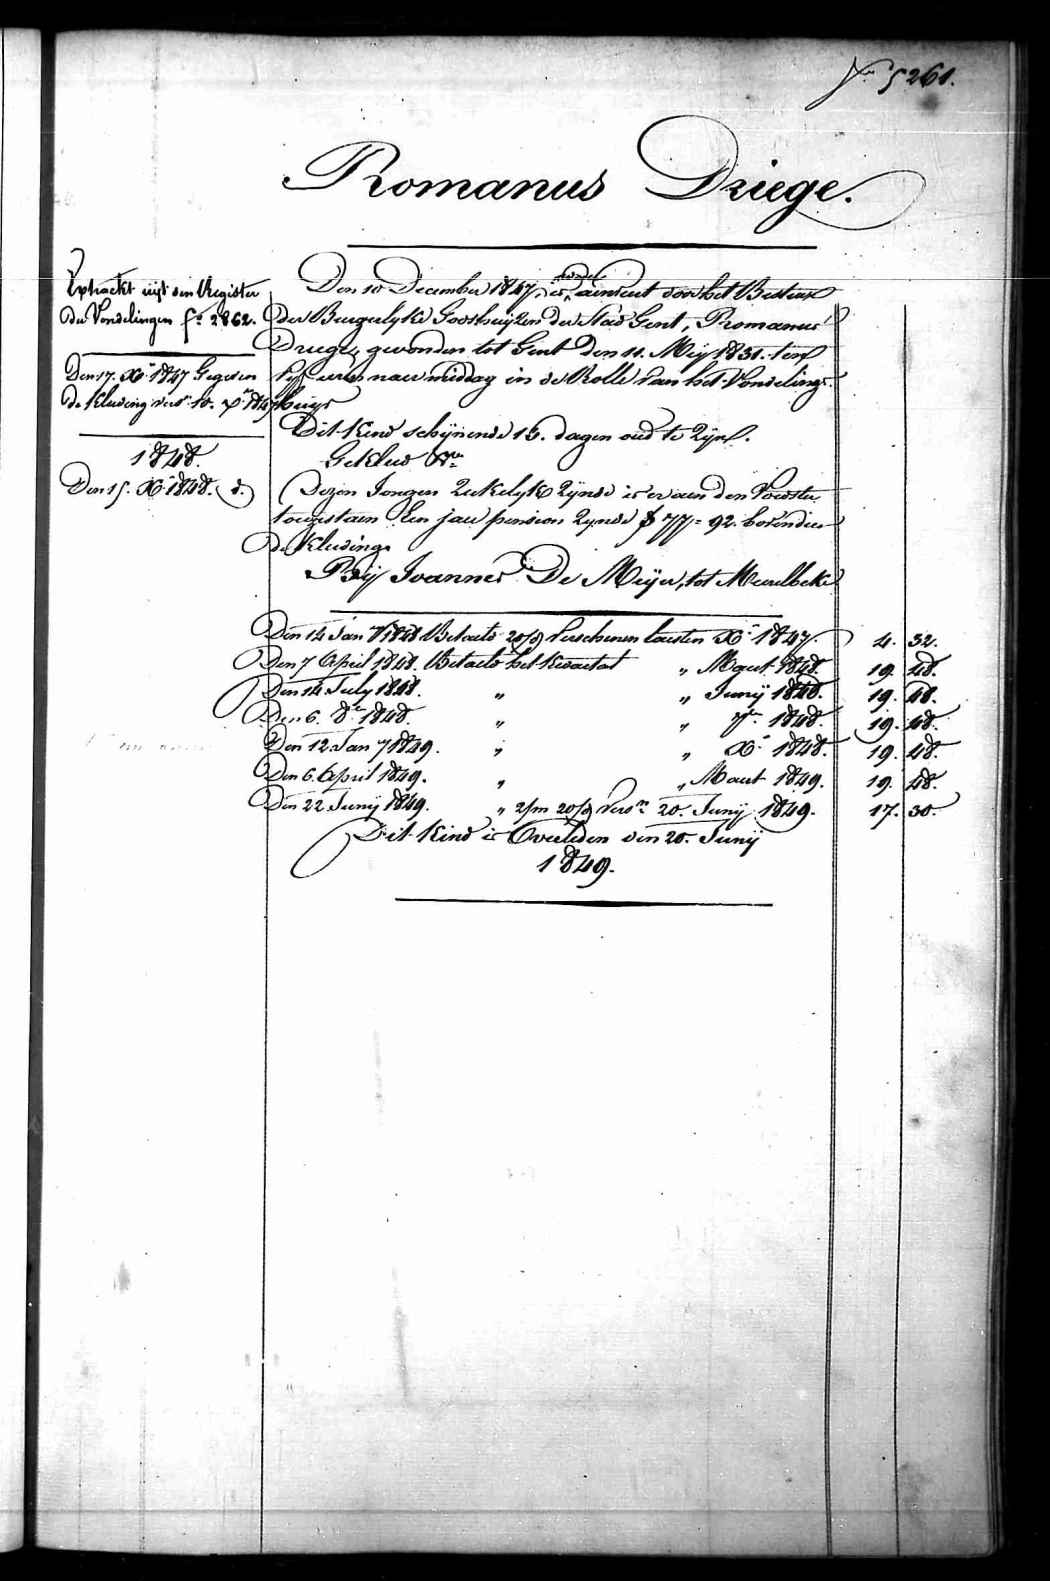 N.o 5261.
Romanus Driege.
Extrackt uijt den Register
der Vondelingen f.o 2862.
Den 17. X.r 1847 Gegeven
de Kleeding vers.n 10. X.r 1847
1848.
Den 15. X.r 1848. d.o
Den 10 December 1847, is aenveert door het Bestier
der Burgerlyke Godshuijzen der Stad Gent, Romanus
Driege, gevonden tot Gent den 11. Meij 1831. ten
vyf uren naermiddag in de Rolle van het Vondelings-
huijs
Dit Kind schijnende 15. dagen oud te zijn.
Gekleed
Dezen Jongen ziekelyk zynde is er aen den Voedster
toegestaen een jaer pension zynde f 77= 92. bovendien
de Kleeding.
Bij Joannes De Meijer, tot Meirelbeke
Den 14 Jan 7 1848 Betaelt 20/d Verschenen laesten X.r 1847. 4. 32.
Den 7 April 1848. Betaelt het Kwartal " Maert 1848. 19. 48.
Den 14 July 1848. " " Junij 1848. 19. 48.
Den 6. 8.r 1848. " " 7.r 1848. 19. 48.
Den 12 Jan 7 1849. " " X.r 1848. 19. 48.
Den 6. April 1849. " " Maert 1849. 19. 48.
Den 22 Junij 1849. " 2/m 20/d Vers.n 20. Junij 1849. 17. 30.
Dit Kind is Overleden den 20. Junij
1849.